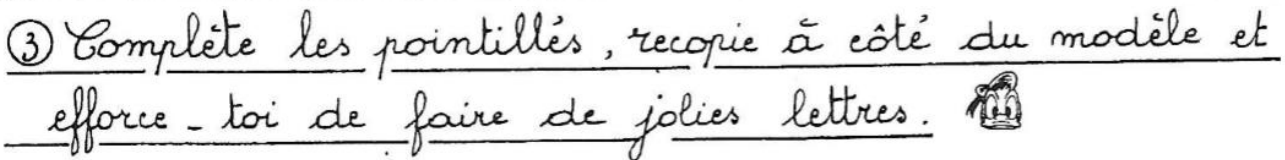 ③ Complète les pointillés, recopie à côté du modèle et
efforce-toi de faire de jolies lettres.